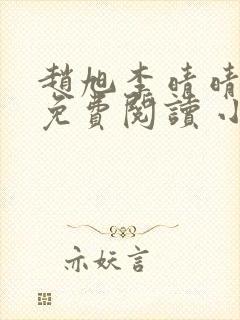 趙旭李晴晴
免費閱讀小
亦妖言